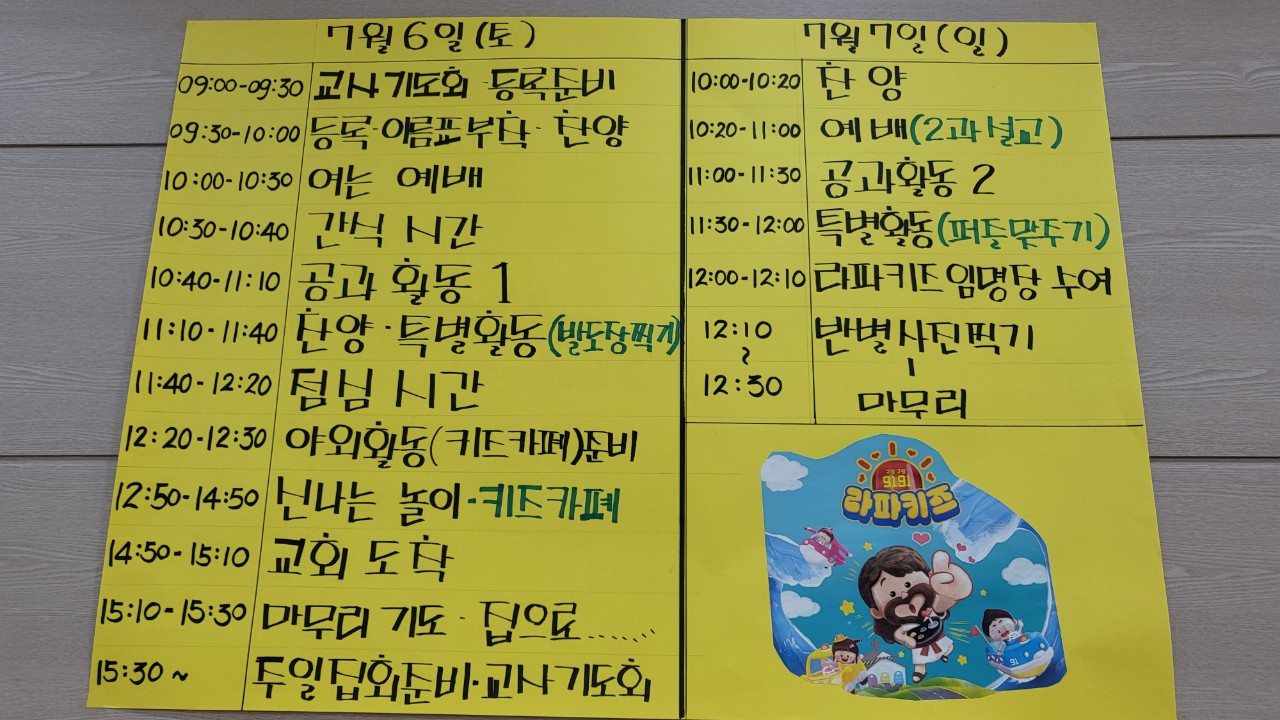 7월 6일 (토)
09:00-09:30 교사 기도회·등록준비
09:30-10:00 등록·이름표부착·찬양
10:00-10:30 여는 예배
10:30-10:40 간식 시간
10:40-11:10 공과 활동 1
11:10-11:40 찬양·특별활동(발도장찍기)
11:40-12:20 점심 시간
12:20-12:30 야외활동(키즈카페)준비
12:50-14:50 신나는 놀이·키즈카페
14:50-15:10 교회 도착
15:10-15:30 마무리 기도·집으로......
15:30~ 주일집회준비·교사 기도회
7월 7일 (일)
10:00-10:20 찬양
10:20-11:00 예배(2과설교)
11:00-11:30 공과활동 2
11:30-12:00 특별활동(퍼즐맞추기)
12:00-12:10 라파키즈임명장 수여
12:10 반별사진찍기
~
12:30 마무리
구원 구원
9191
라파키즈
91